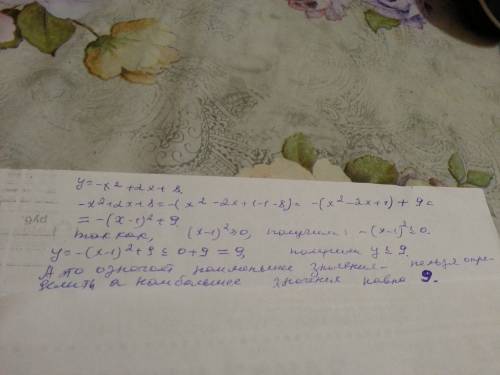 y=-x²+2x+8.
-x²+2x+8=-(x²-2x+1-1-8)= -(x²-2x+1)+9=
=-(x-1)²+9.
так как, (x-1)²≥0, получим: -(x-1)²≤0.
y=-(x-1)²+9≤0+9=9, получим y≤9.
А это означает наименьшее значения- нельзя опре-
делить а наибольшее значения равно 9.
руб.